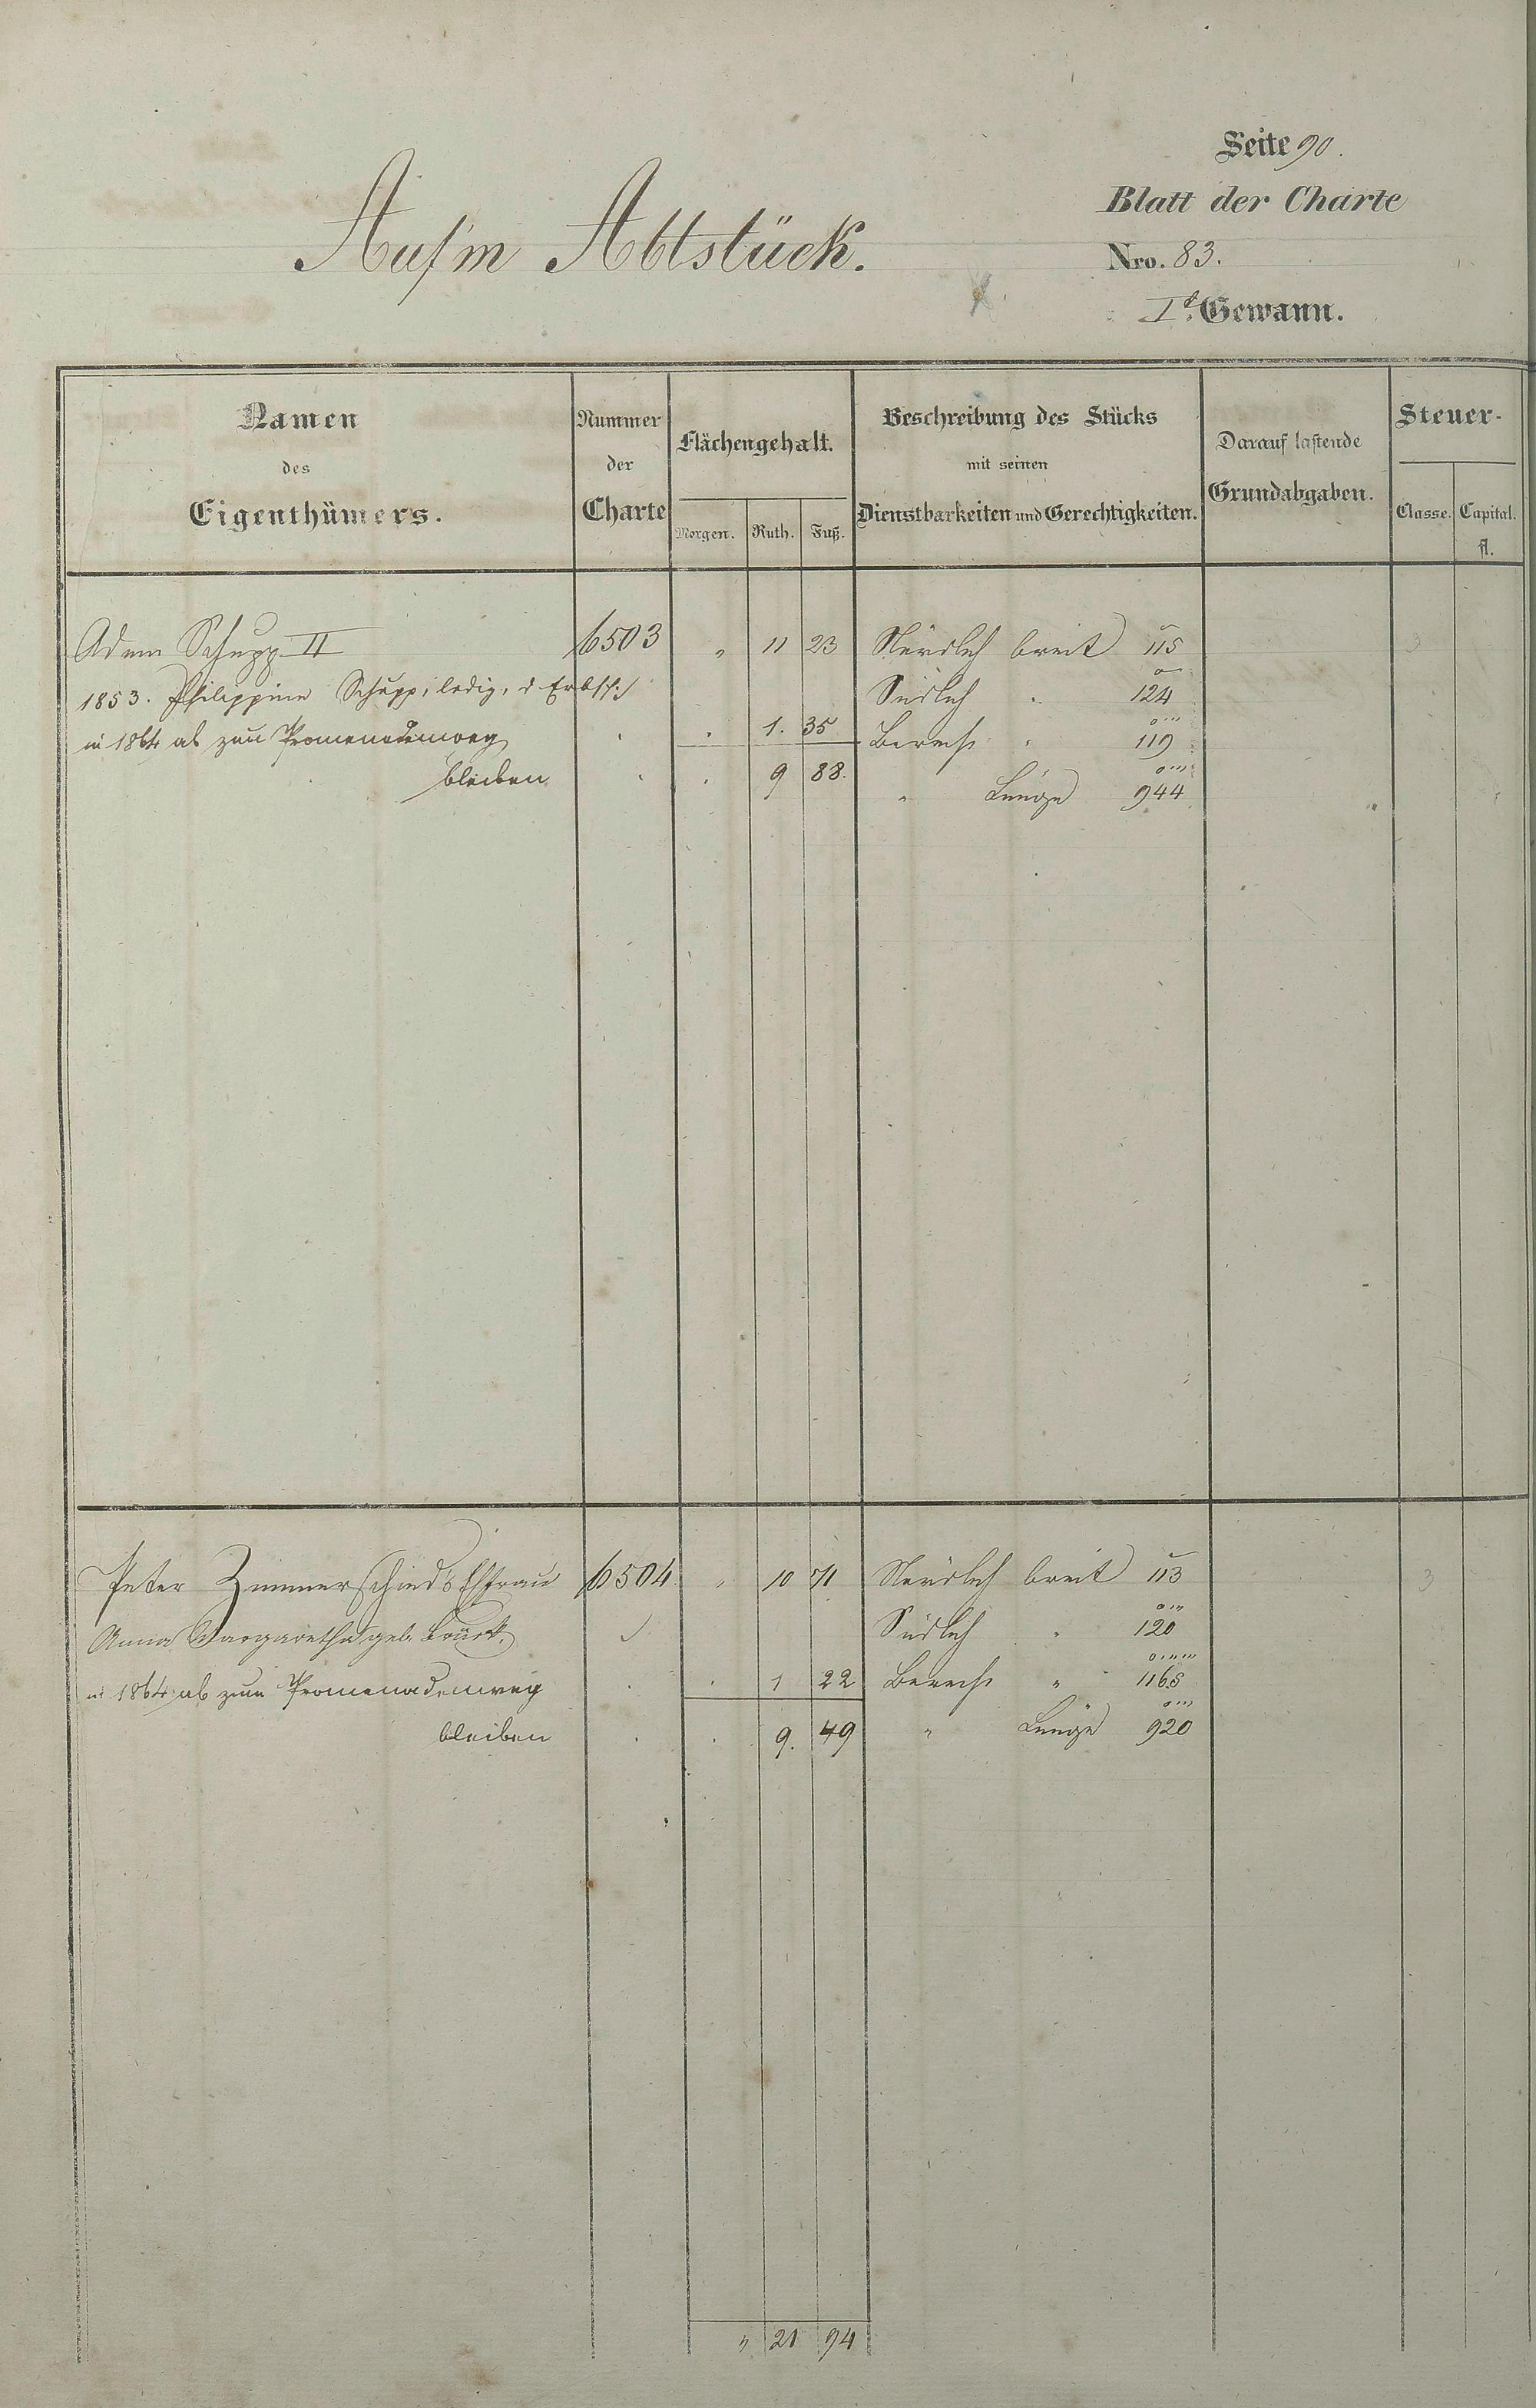 Seite 90.
Blatt der Charte
Auf'm Abtstück.
Nro. 83.
I.t Gewann.
Namen des Eigenthümers.
Nummer der Charte
Flächengehalt.
Morgen. Ruth. Fuß.
Beschreibung des Stücks mit seinen Dienstbarkeiten und Gerechtigkeiten.
Darauf lastende Grundabgaben.
Steuer-
Classe. Capital. fl.
Adam Schupp II 6503 " 11 23 Nördlich breit 115 3
1853. Philippine Schupp, ledig, d Erbsch:/ Südlich " 124
in 1864 ab zum Promenadenweg . . 1. 35 Berech " 119
bleiben . . 9 88. " Länge 944
Peter Zimmerschied's Ehfrau 6504 " 10 71 Nördlich breit 113 3
Anna Margaretha geb. Brück. Südlich " 120
in 1864 ab zum Promenadenweg . . 1 22 Berech " 1165
bleiben . . 9. 49 " Länge 920
" 21 94